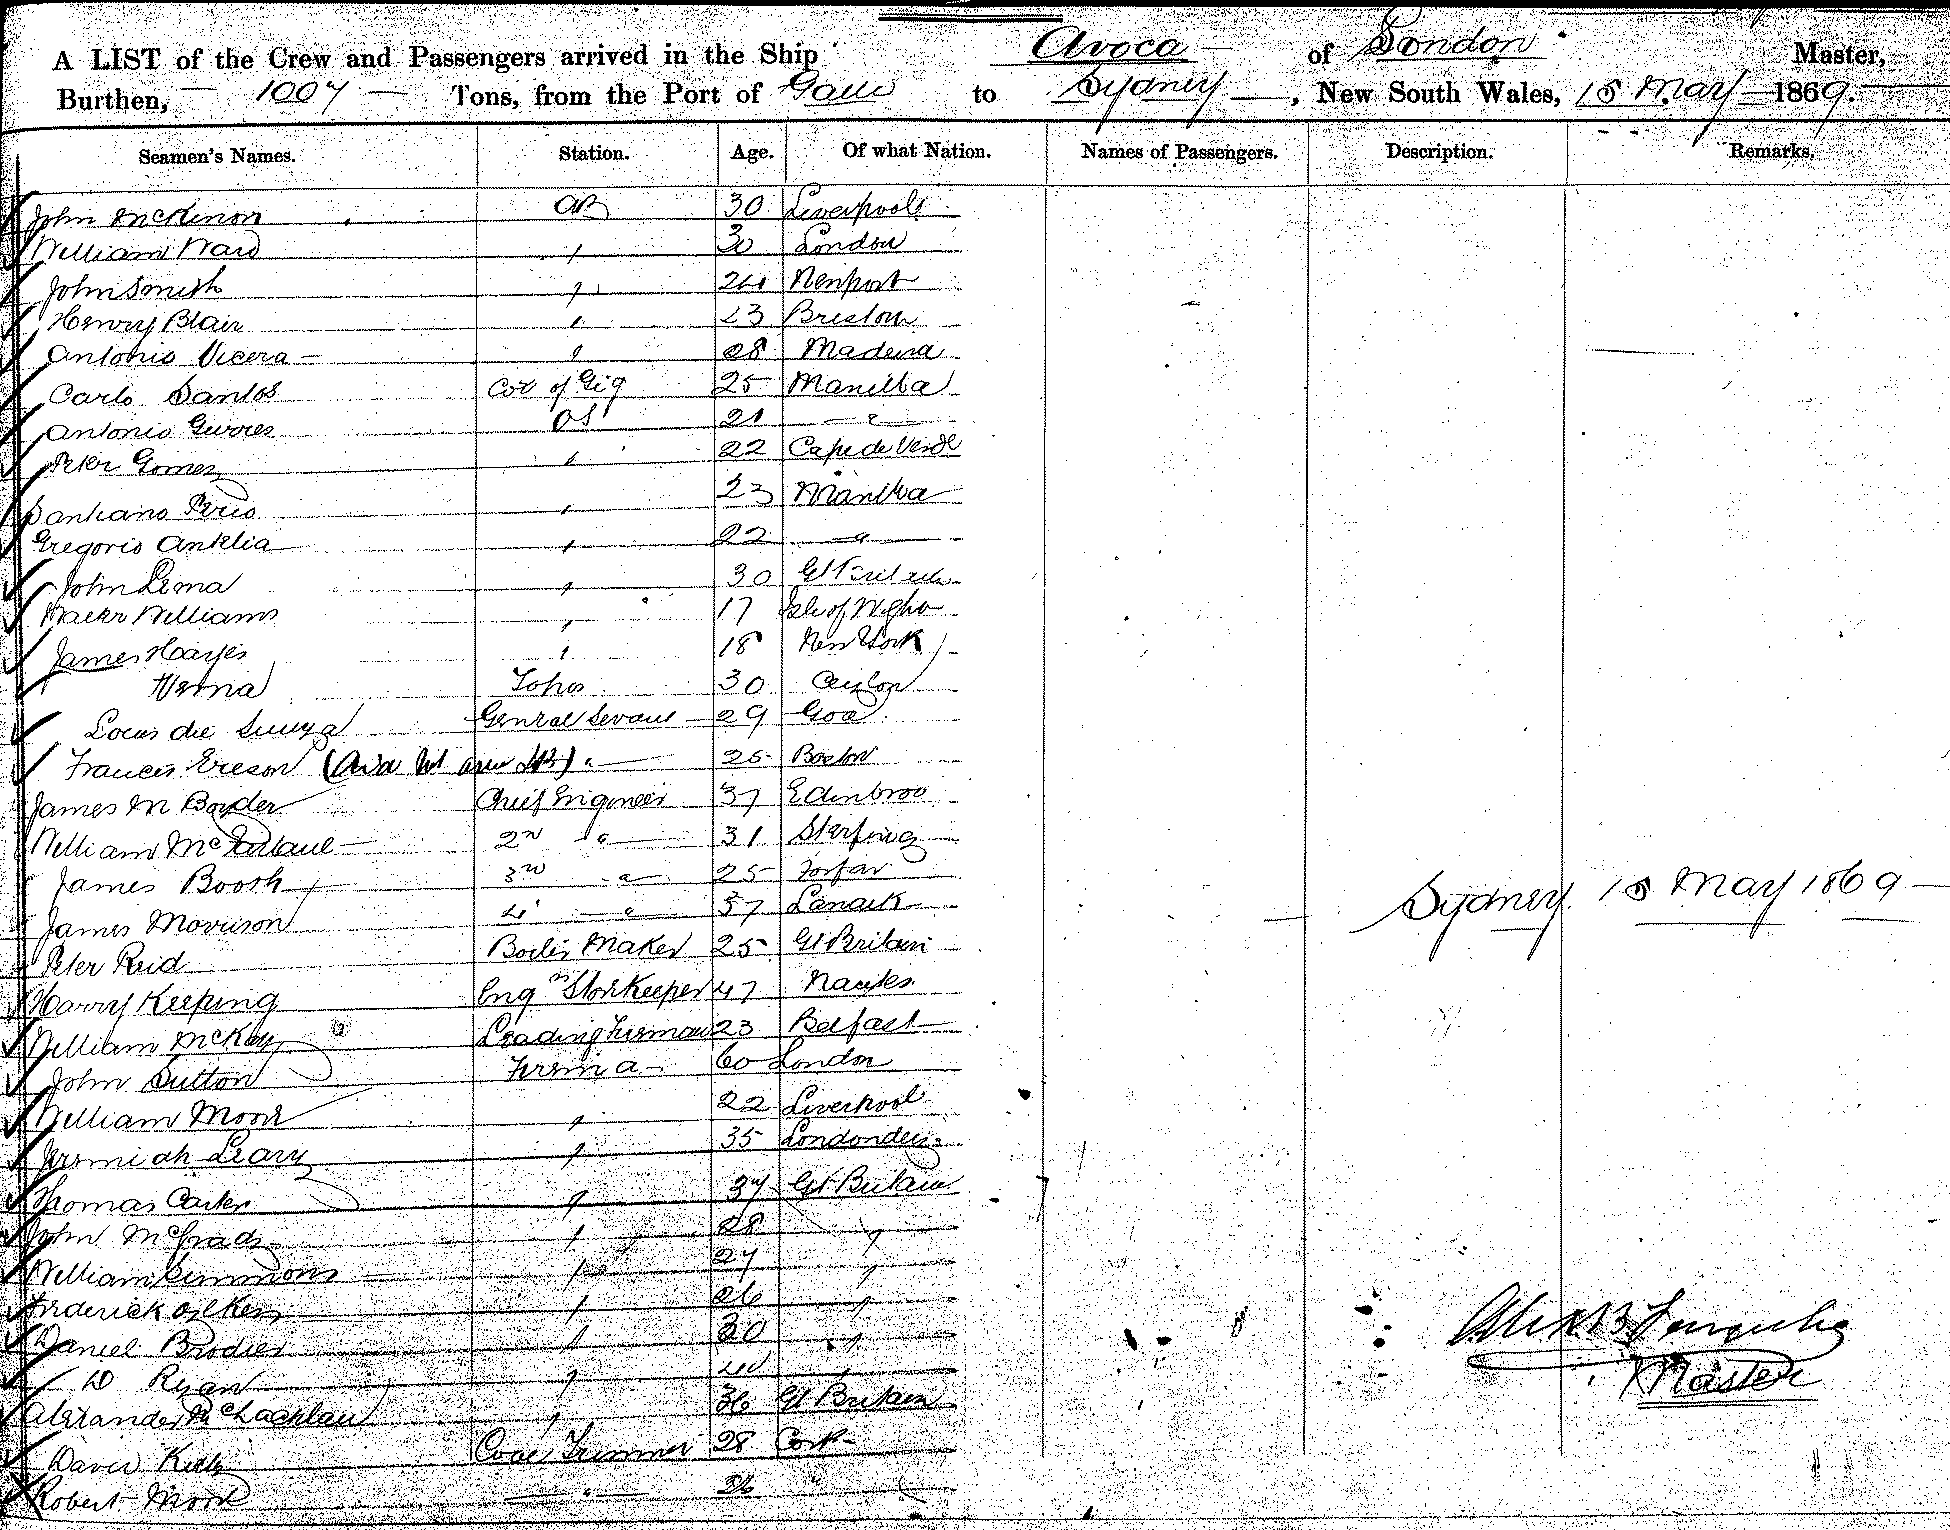 A LIST of the Crew and Passengers arrived in the Ship Avoca of London Master,
Burthen, 1007 Tons, from the Port of Galle to Sydney, New South Wales, 15 May 1869.
Seamen's Names. Station. Age. Of what Nation. Names of Passengers. Description. Remarks.
John McKinon AB 30 Liverpool
William Ward " 30 London
John Smith " 24 Newport
Henry Blair " 23 Bristow
Antonio Vicera " 28 Madeira
Carlo Santos Cox of Gig 25 Manilla
Antonio OS 21 "
Peter Gomez " 22 Cape de Verde
Perio " 23 Manilla
Gregorio Anklia " 22 "
John Lema " 30 Gt
Williams " 17 Isle of
James Hayes " 18 New York
Verna Topas 30 Ceylon
Louis de Souza Genral Servant 29 Goa
Francis " 25 Boston
James M Border Chief Engineer 37 Edinbroo
William McFarlane 2nd " 31 Sterling
James Boosh 3rd " 25 Forfar
James Morrison 4 " 37 Lanark
Sydney 15 May 1869
Peter Reid Boiler Maker 25 Gt Britain
Harry Keeping Engrs Storekeeper 47
William McKay Leading Fireman 23 Belfast
John Sutton 60 London
William Moor " 22 Liverpool
Jeremiah Leary " 35
Thomas Carter " 37 Gt Britain
John McGrady " 28 "
William Simmons " 27 "
Frederick " 26 "
Daniel " 30 "
D Ryan " 40 "
Alexander McLachlan " 36 Gt Britain
David Coal Trimmer 28 Cork
Robert Moor " 36 "
Master